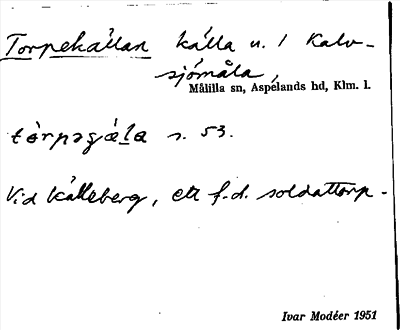 Torpekällan källa u. 1 Kalv-
sjömåla,
Målilla sn, Aspelands hd, Klm. l.
s. 53.
Vid Källeberg, ett f.d. soldattorp.
Ivar Modéer 1951